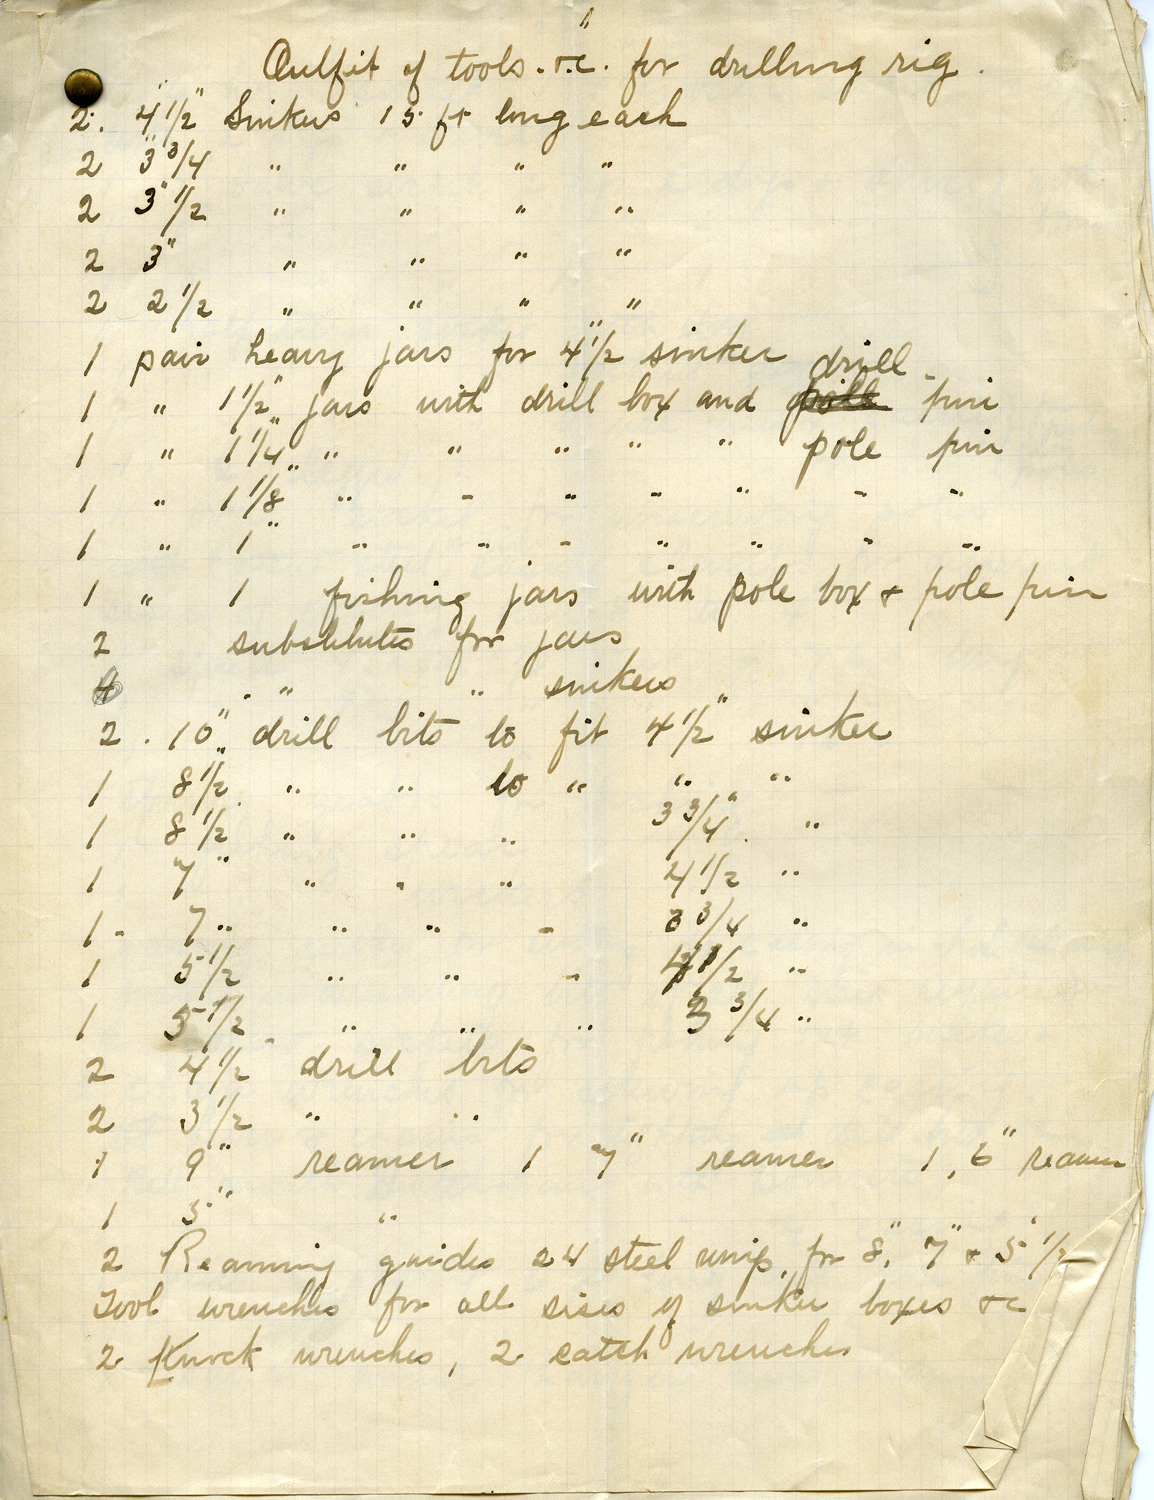 Outfit of tools. &c. for drilling rig.
2. 4 1/2" Sinkers 15 ft long each
2 3" 3/4 " " " "
2 3" 1/2 " " " "
2 3" " " " "
2 2 1/2 " " " "
1 pair heavy jars for 4 1/2" sinker
drill
1 " 1 1/2" jars with drill box and pin
1 " 1 1/4" " " " " " pole pin
1 " 1 1/8" " - " - " - "
1 " 1" " " - " " " "
1 " 1 fishing jars with pole box & pole pin
2 substitutes for jars
4 " " sinkers
2. 10" drill bits to fit 4 1/2" sinker
1 8 1/2" " " to " " "
1 8 1/2 " " " 3 3/4" "
1 7" " " " 4 1/2 "
1 - 7" " " - 3 3/4 "
1 5 1/2 " " - 4 1/2 "
1 5 1/2 " " " 3 3/4 "
2 4 1/2 drill bits
2 3 1/2 " "
1 9" reamer 1 7" reamer 1, 6" reamer
1 5" "
2 Reaming guides 24 steel for 8", 7" & 5" 1/2
Tool wrenches for all sises of sinker boxes &c
2 Knock wrenches, 2 catch wrenches